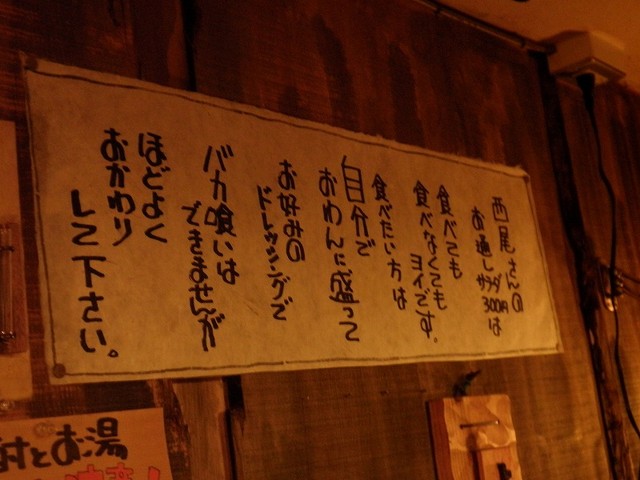 西尾さんの
お通しサラダ300円は
食べても
食べなくても
ヨイです。
食べたい方は
自分で
おわんに盛って
お好みの
ドレッシングで
バカ喰いは
できませんが
ほどよく
おかわり
して下さい。
とお湯